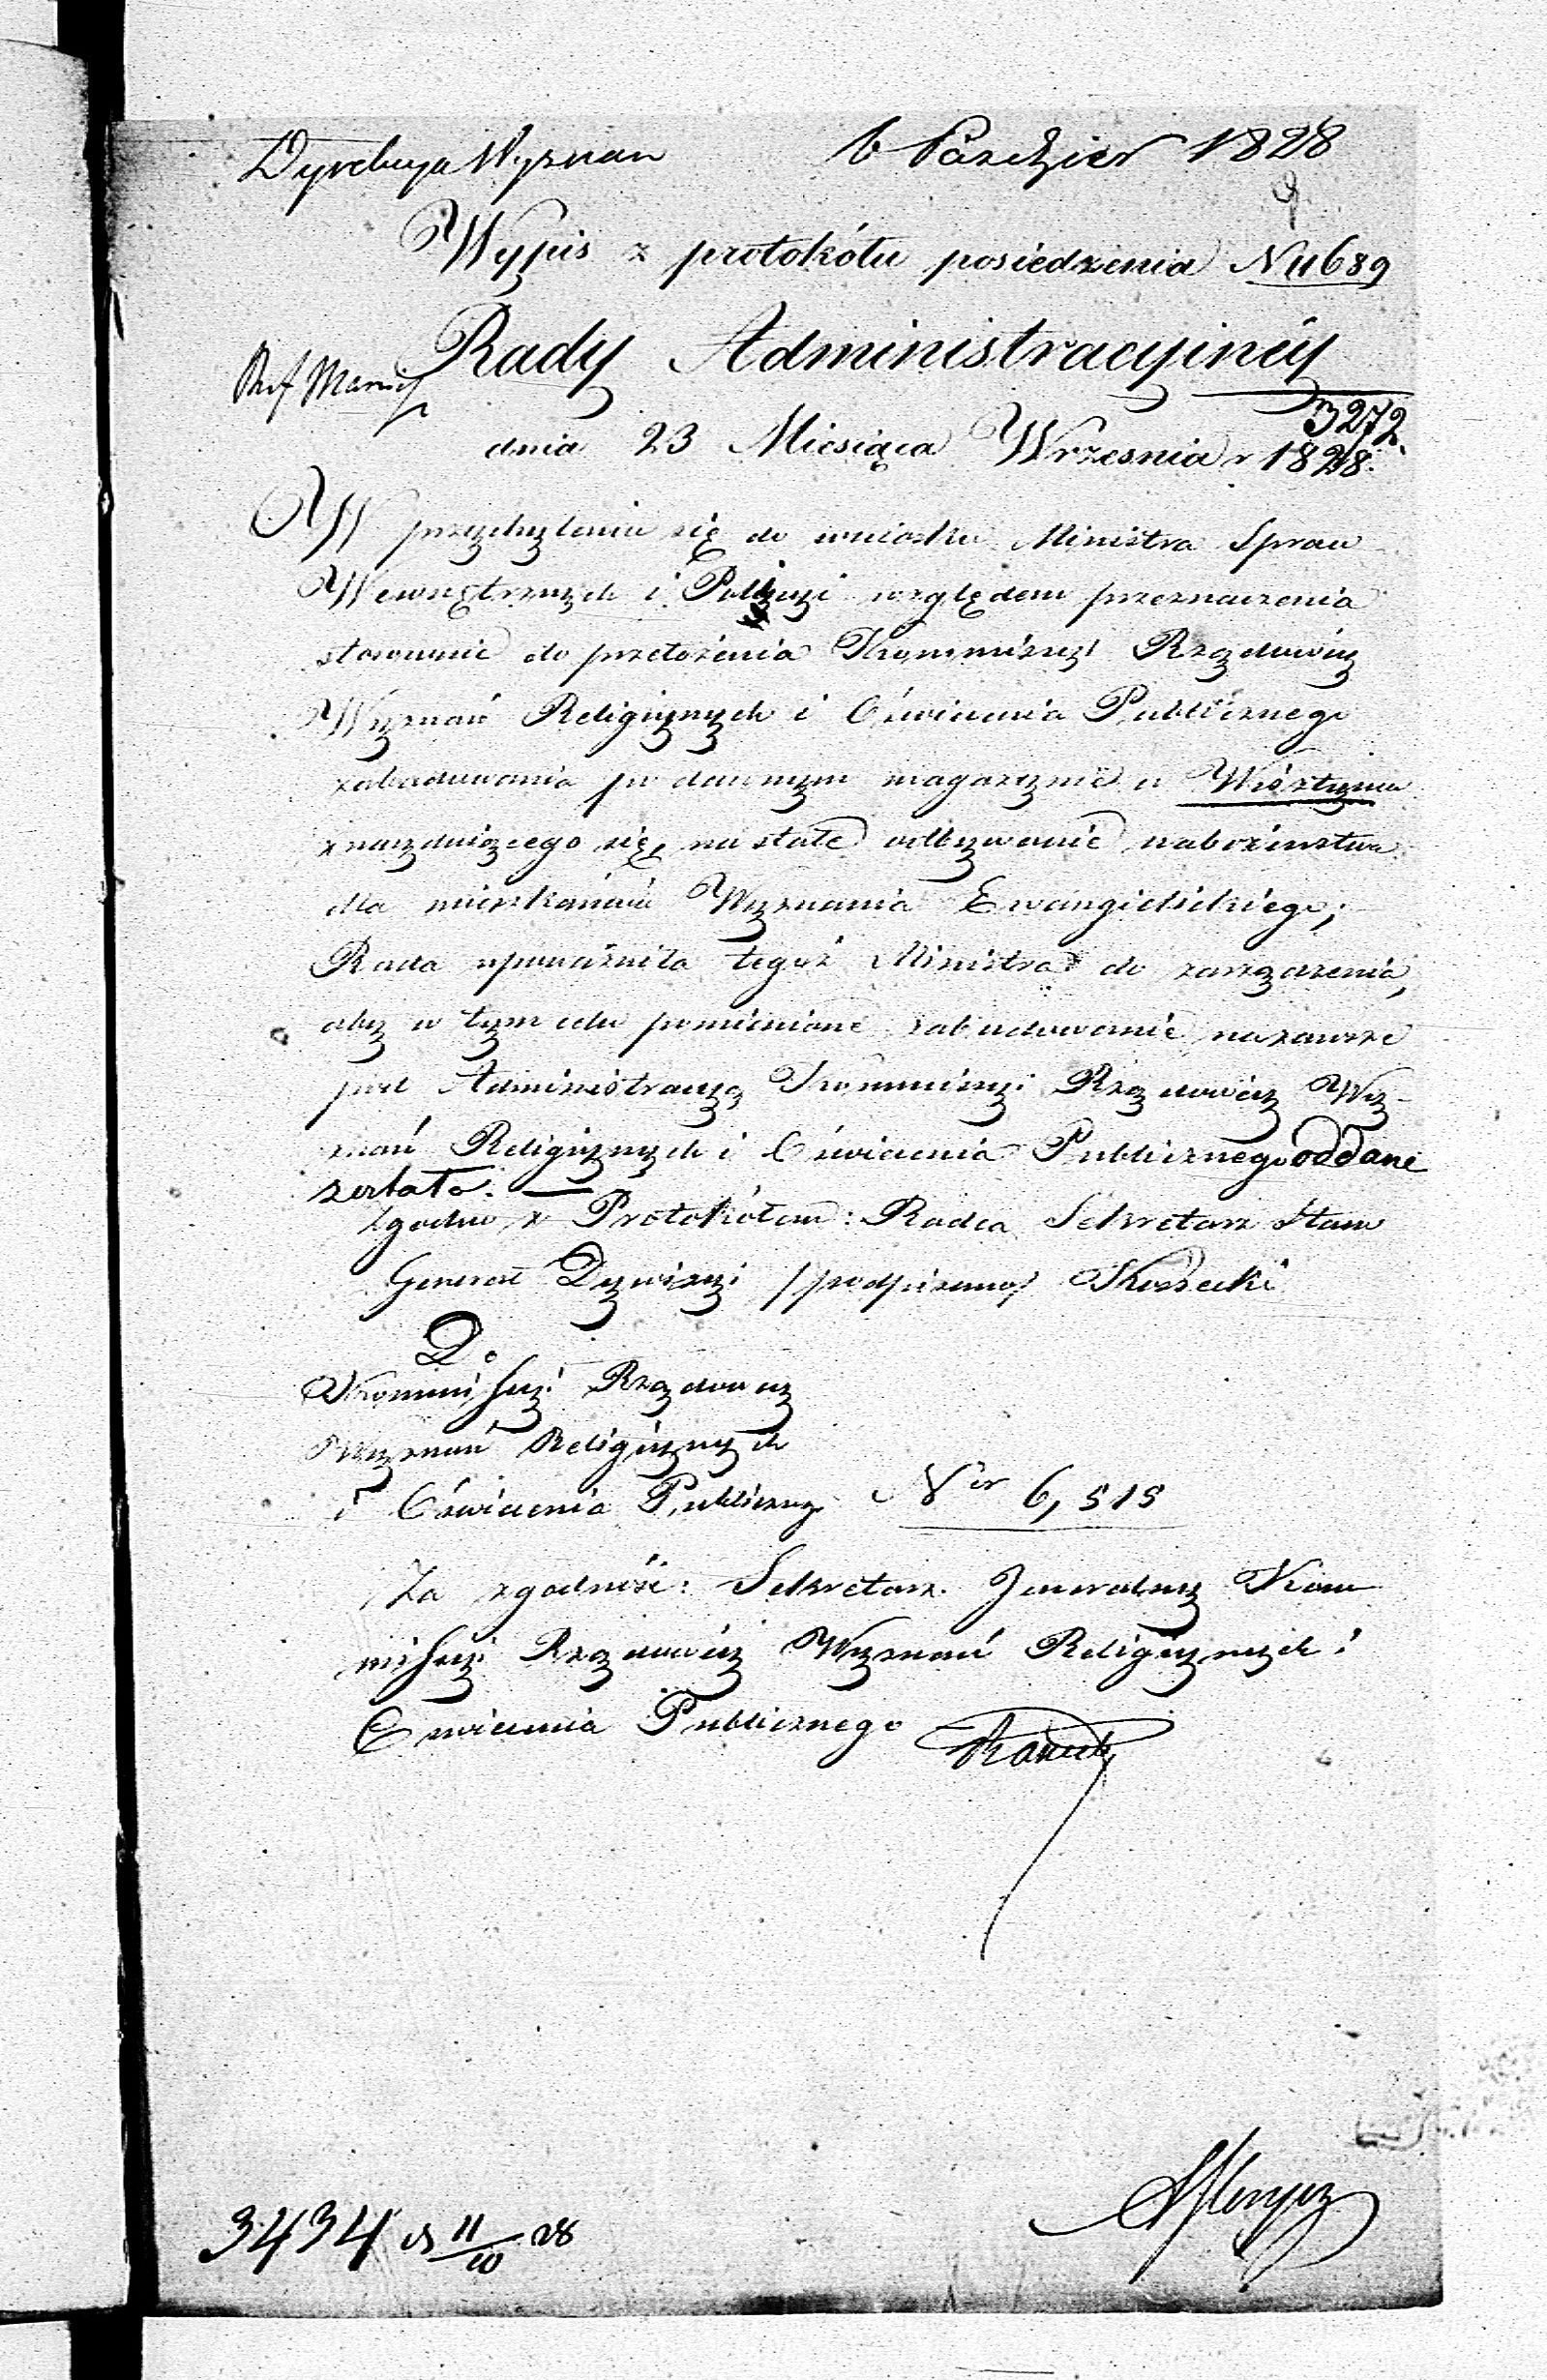 Dyrekcya Wyznan 6 Pazdzier 1828
Wypis z protokółu posiedzenia N 11689
Rady Administracyinéy
Ref
3272
dnia 23 Miesiąca Wrzesnia r 1828.
W przychyleniu się do wniosku Ministra Spraw
Wewnętrznych i Policyi względem przeznaczenia
stosownie do przełożenia Kommissyi Rządowéy
Wyznań Religiynych i Oświecenia Publicznego
zabudowania po dawnym magazynie w
znayduiącego się, na stałe odbywanie nabożeństwa
dla mieszkańców Wyznania Ewangielickiego;
Rada upoważniła tegoż Ministra do zarządzenia,
aby w tym celu pomienione zabudowanie na zawsze
pod Administracyą Kommissyi Rządowéy Wy-
znań Religiynych i Oświecenia Publicznego oddane
zostało. —
Zgodno z Protokółem: Radca Sekretarz Stanu
Generał Dywizyi /podpisano/ Kossecki
Do
Kommissyi Rządowéy
Wyznań Religiynych
i Oświecenia Publiczng Ner 6,515
Za zgodność: Sekretarz Jeneralny Kom
missyi Rządowéy Wyznań Religiynych i
Oswiecenia Publicznego
3434 d 11/10 28